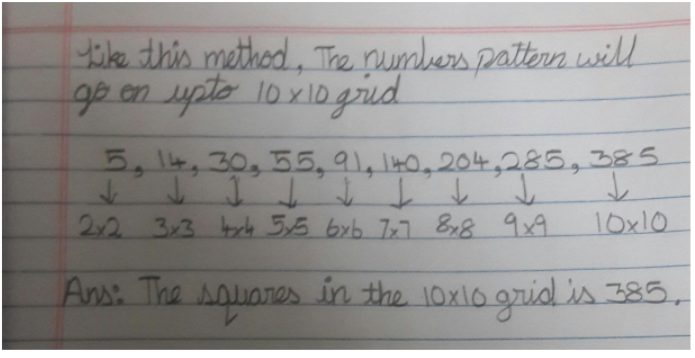 Like this method, The numbers pattern will
go on upto 10x10 grid
5, 14, 30, 55, 91, 140, 204, 285, 385
↓ ↓ ↓ ↓ ↓ ↓ ↓ ↓ ↓
2x2 3x3 4x4 5x5 6x6 7x7 8x8 9x9 10x10
Ans: The squares in the 10x10 grid is 385.